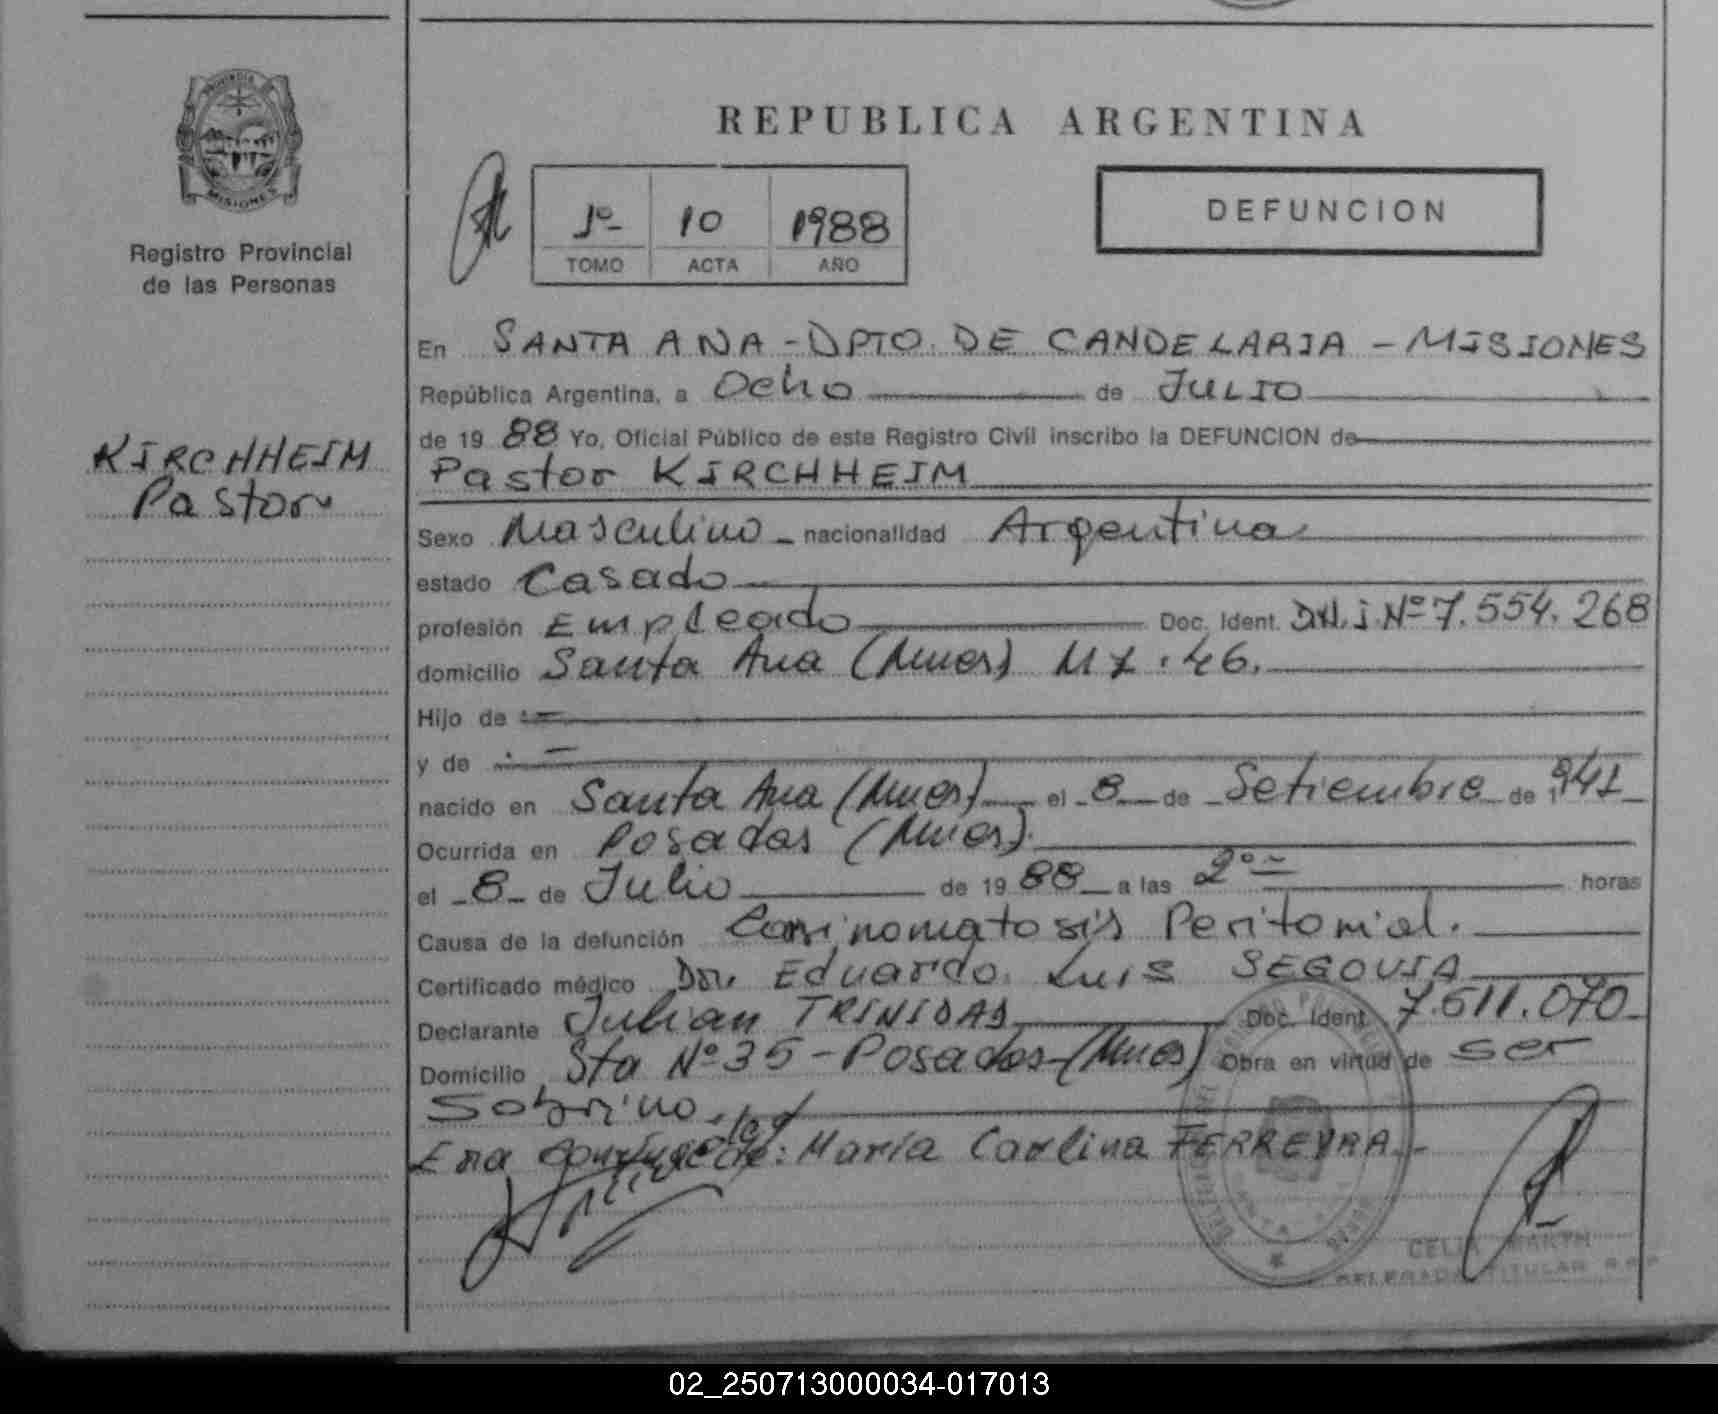 PROVINCIA
MISIONES
Registro Provincial
de las Personas
KIRCHHEIM
Pastor
REPUBLICA ARGENTINA
1º 10 1988
TOMO ACTA AÑO
DEFUNCION
En SANTA ANA - DPTO. DE CANDELARIA - MISIONES
República Argentina, a Ocho de JULIO
de 19 88 Yo, Oficial Público de este Registro Civil inscribo la DEFUNCION de
Pastor KIRCHHEIM
Sexo Masculino - nacionalidad Argentina
estado Casado
profesión Empleado Doc. Ident. D.N.I. Nº 7.554.268
domicilio Santa Ana (Mnes) Mz. 46.
Hijo de : =
y de . =
nacido en Santa Ana (Mnes) el 8 de Setiembre de 1941
Ocurrida en Posadas (Mnes).
el 8 de Julio de 19 88 a las 2º= horas
Causa de la defunción Carsinomatosis Peritonial.
Certificado médico Dr. Eduardo Luis SEGOVIA
Declarante Julian TRINIDAD Doc. Ident. 7.611.070
Domicilio Sta Nº 35 - Posadas - (Mnes) Obra en virtud de ser
Sobrino.
Era conyuge de: María Carlina FERREYRA.
CELIA
TITULAR
02_250713000034-017013